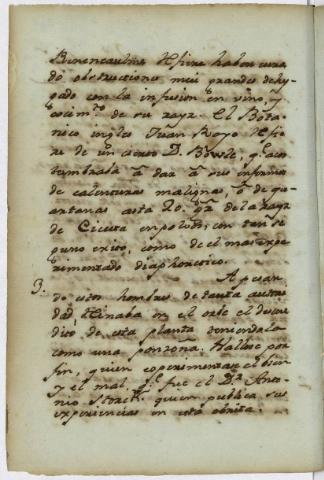 refiere haber cura
do obstrucciones mui grandes de hy
gado con la infusion en vino, y
cocim.to de su rayz. El Bota
nico ingles Juan Rayo refie
re de un cierto D. Bowle, q.e acos
tumbraba à dar à sus enfermos
de calenturas malignas, ò de qua
artanas asta 20 g.s de la rayz
de Cicuta en polvos, con tan se
guro exito, como de el mas expe
rimentado diaphoretico.
3. A pesar
de estos hombres de tanta autori
dad, reinaba en el orbe el descre
dito de esta planta teniendola
como una ponzoña. Hallose por
fin, quien experimentase el bien
y el mal, q.e fue el D.r Anto
nio Storck, quien publica sus
experiencias en esta obrita.